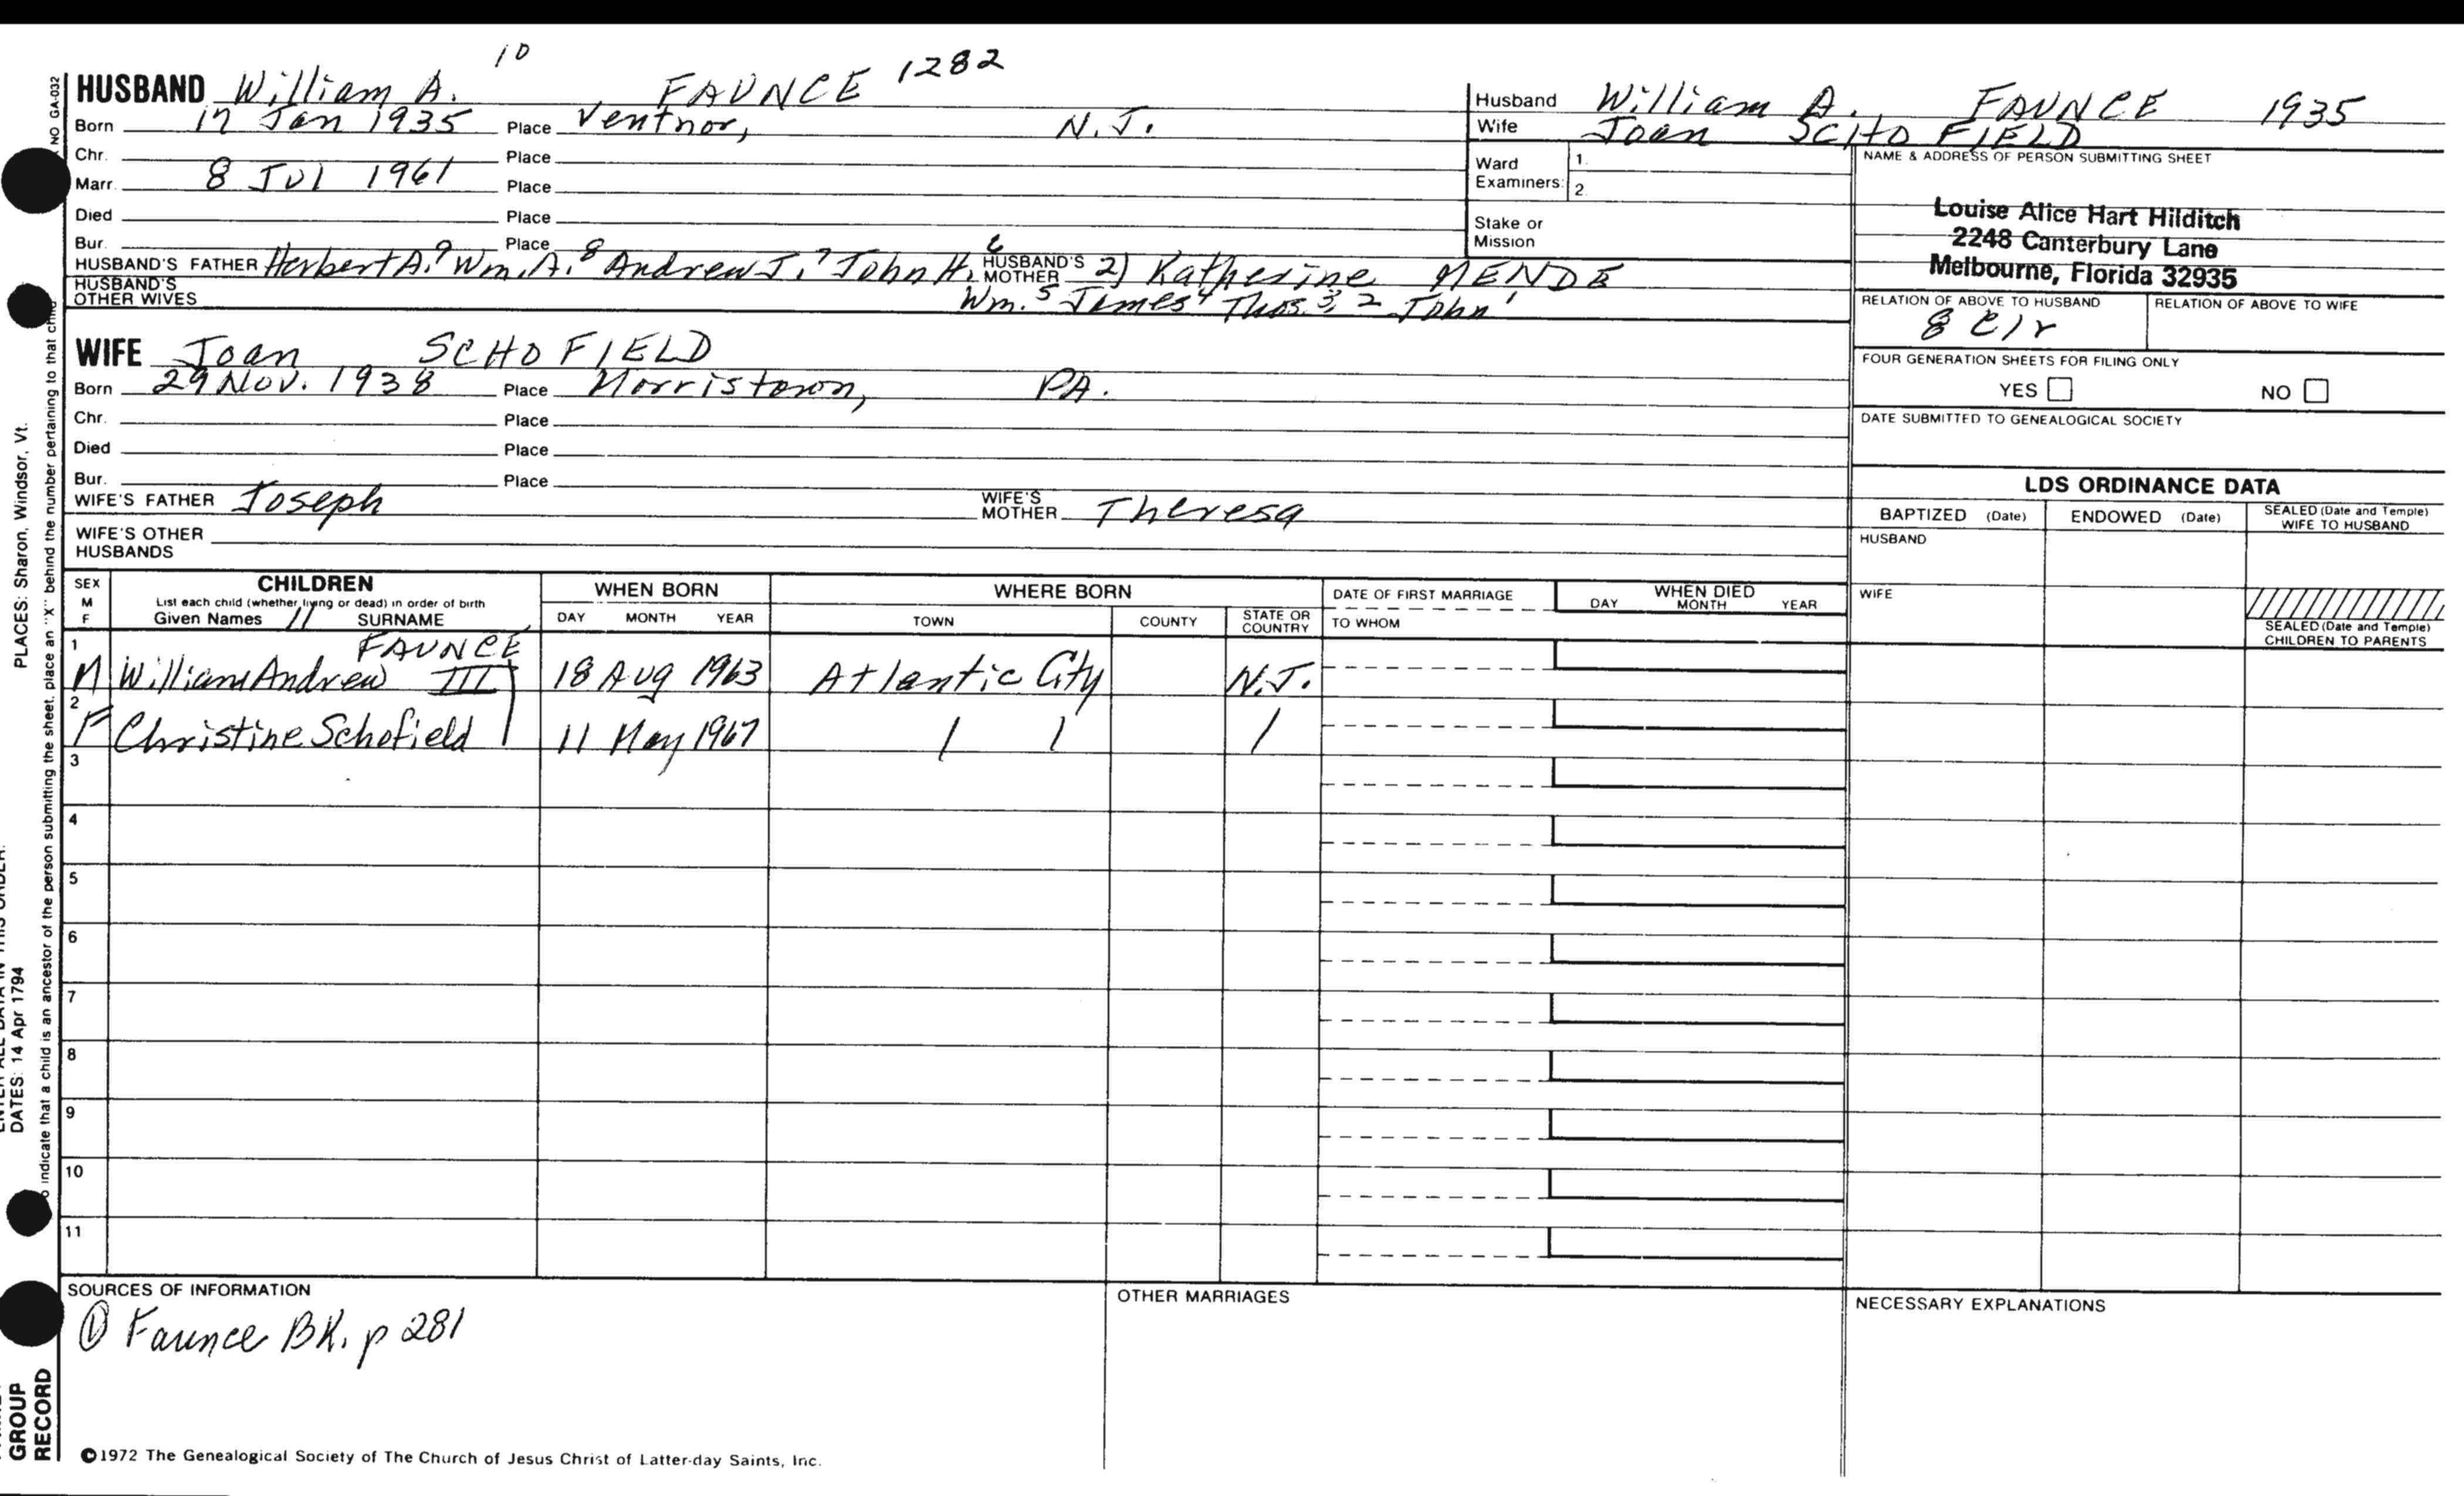 10
HUSBAND William A. FAUNCE 1282
Born 17 Jan 1935 Place Ventnor, N.J.
Chr. Place
Marr. 8 Jul 1961 Place
Died Place
Bur. Place
HUSBAND'S FATHER Herbert A.9 Wm. A.8 Andrew J.7 John H.6 HUSBAND'S MOTHER 2) Katherine MENDE
HUSBAND'S OTHER WIVES Wm.5 James4 Thos.3, 2 John1
WIFE Joan SCHOFIELD
Born 29 Nov. 1938 Place Norristown, PA.
Chr. Place
Died Place
Bur. Place
WIFE'S FATHER Joseph WIFE'S MOTHER Theresa
WIFE'S OTHER HUSBANDS
Husband William A. FAUNCE 1935
Wife Joan SCHOFIELD
Ward Examiners: 1.
2.
Stake or Mission
NAME & ADDRESS OF PERSON SUBMITTING SHEET
Louise Alice Hart Hilditch
2248 Canterbury Lane
Melbourne, Florida 32935
RELATION OF ABOVE TO HUSBAND RELATION OF ABOVE TO WIFE
8 C/r
FOUR GENERATION SHEETS FOR FILING ONLY
YES NO
DATE SUBMITTED TO GENEALOGICAL SOCIETY
LDS ORDINANCE DATA
BAPTIZED (Date) ENDOWED (Date) SEALED (Date and Temple) WIFE TO HUSBAND
HUSBAND
WIFE
SEALED (Date and Temple) CHILDREN TO PARENTS
SEX M F CHILDREN WHEN BORN WHERE BORN DATE OF FIRST MARRIAGE WHEN DIED
List each child (whether living or dead) in order of birth
Given Names 11 SURNAME DAY MONTH YEAR TOWN COUNTY STATE OR COUNTRY TO WHOM DAY MONTH YEAR
FAUNCE
1 M William Andrew III 18 Aug 1963 Atlantic City N.J.
2 F Christine Schofield 11 May 1967 / / /
3
4
5
6
7
8
9
10
11
SOURCES OF INFORMATION
① Faunce BK. p 281
OTHER MARRIAGES
NECESSARY EXPLANATIONS
©1972 The Genealogical Society of The Church of Jesus Christ of Latter-day Saints, Inc.
NO GA-032
PLACES: Sharon, Windsor, Vt.
DATES: 14 Apr 1794
indicate that a child is an ancestor of the person submitting the sheet, place an "X" behind the number pertaining to that child
GROUP
RECORD